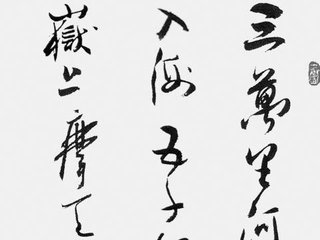 三萬里河
入海五千
嶽上摩天